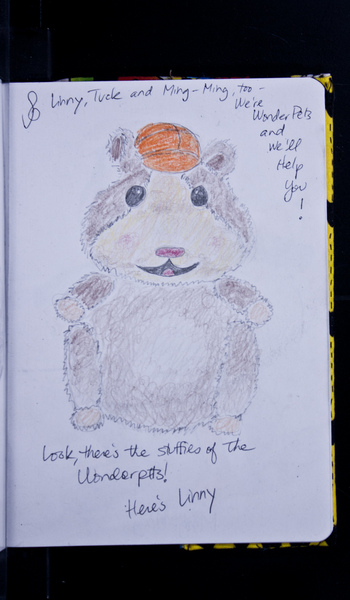 Linny, Tuck and Ming-Ming, too -
We're
WonderPets
and
we'll
Help
You
!
Look, there's the stuffies of the
Wonderpets!
Here's Linny